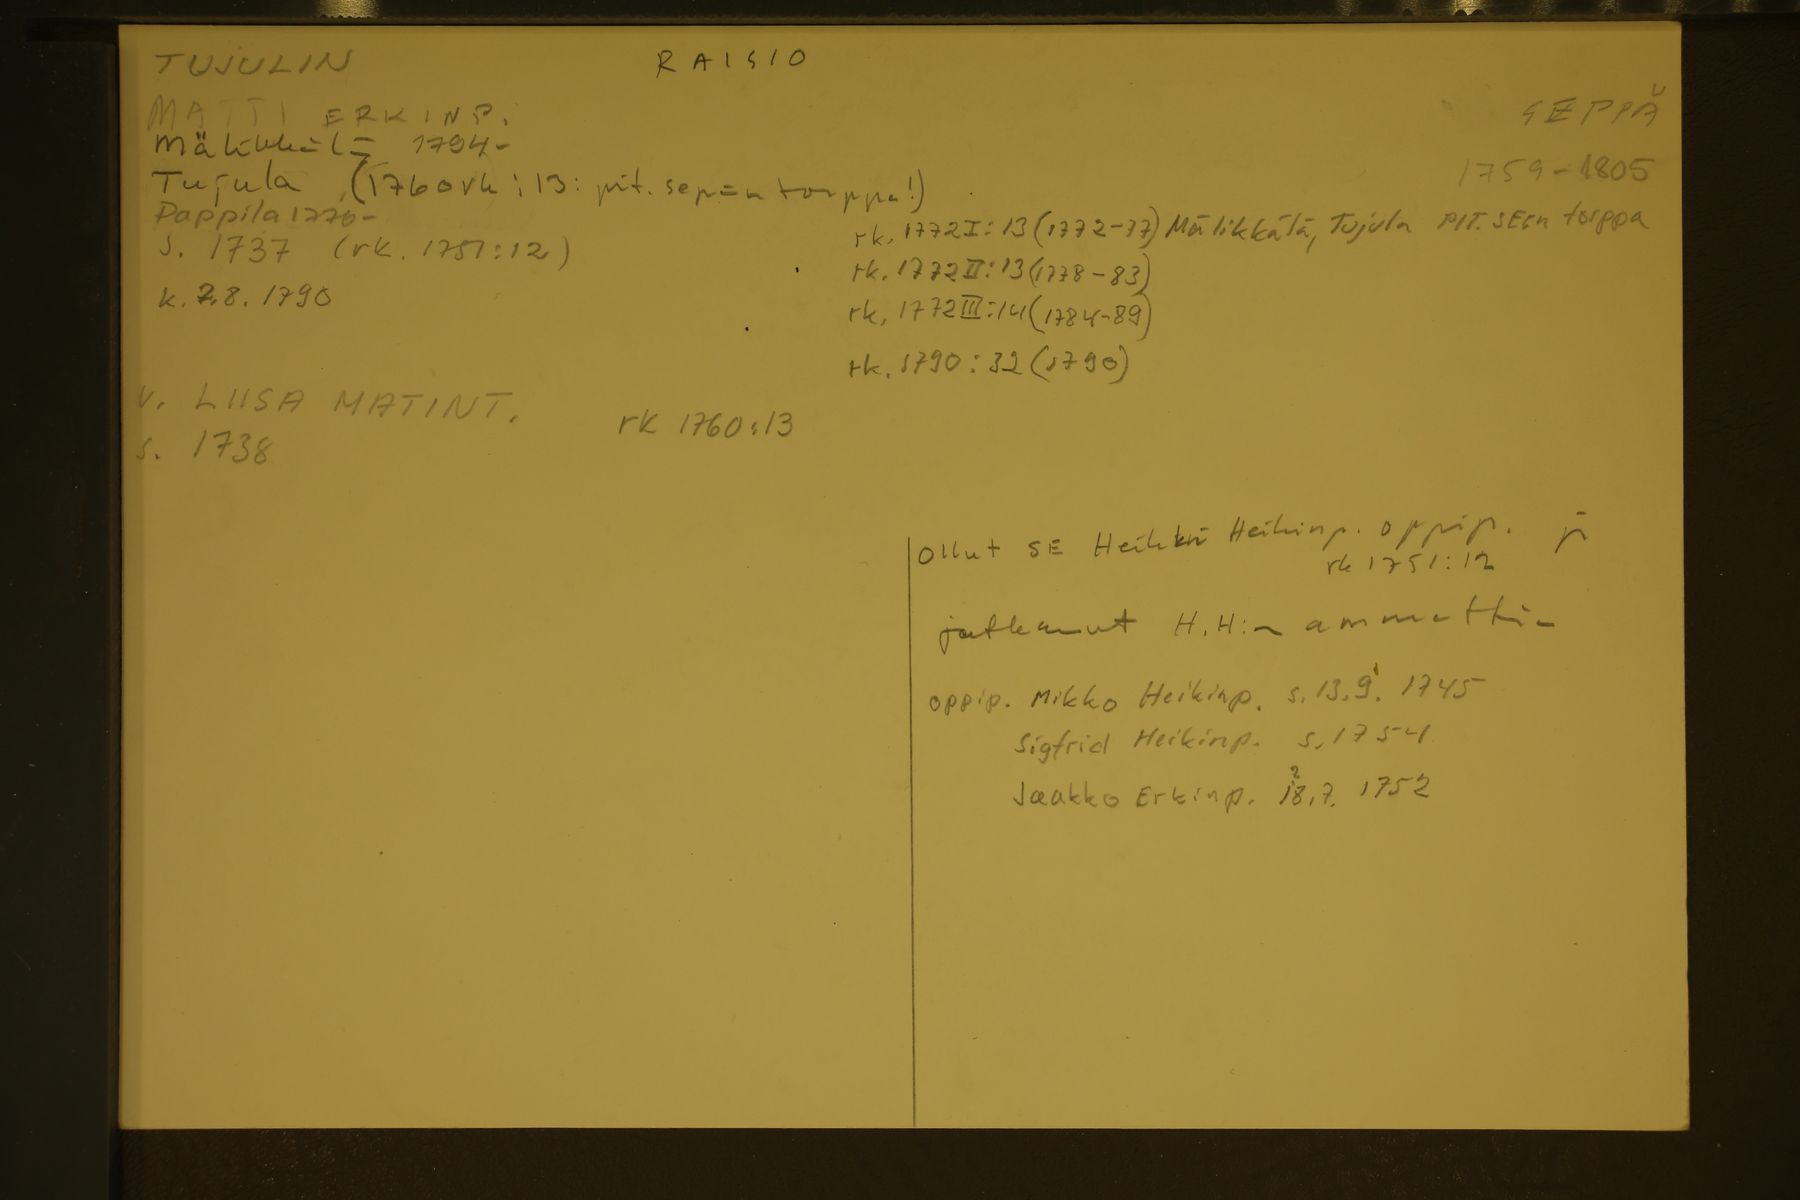 TUJULIN
RAISIO
MATTI ERKINP.
SEPPÄ
Mälikkälä 1794-
1759-1805
Tujula (1760rk; 13: pit. sepän torppa!)
Pappila 1776-
s. 1737 (rk. 1751:12)
k. 2.8. 1790
rk. 1772 I: 13 (1772-77) Mälikkälä, Tujula PIT. SE:n torppa
rk. 1772 II: 13 (1778-83)
rk. 1772 III: 14 (1784-89)
rk. 1790: 32 (1790)
v. LIISA MATINT.
s. 1738
rk 1760:13
Ollut SE Heikki Heikinp. oppip. ja
rk 1751:12
jatkanut H.H:n ammattia
oppip. Mikko Heikinp. s. 13.9. 1745
Sigfrid Heikinp. s. 1754
Jaakko Erkinp. 18.7. 1752